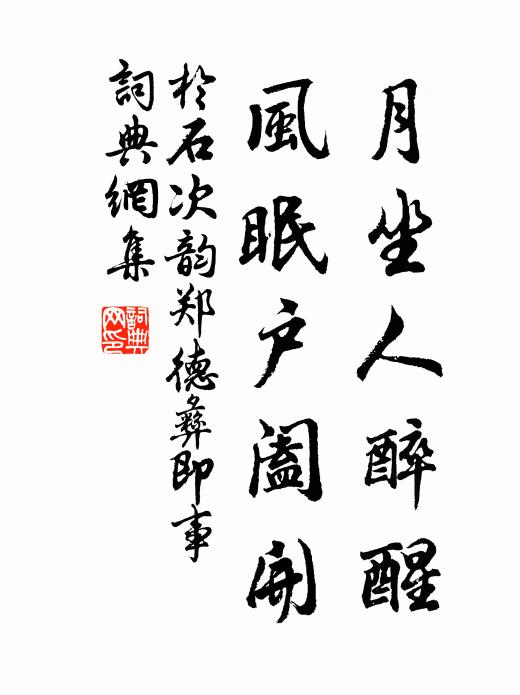 月坐人醉醒
風眠户阖開
於石次韵郑德彝即事
詞典網集
詞典网印